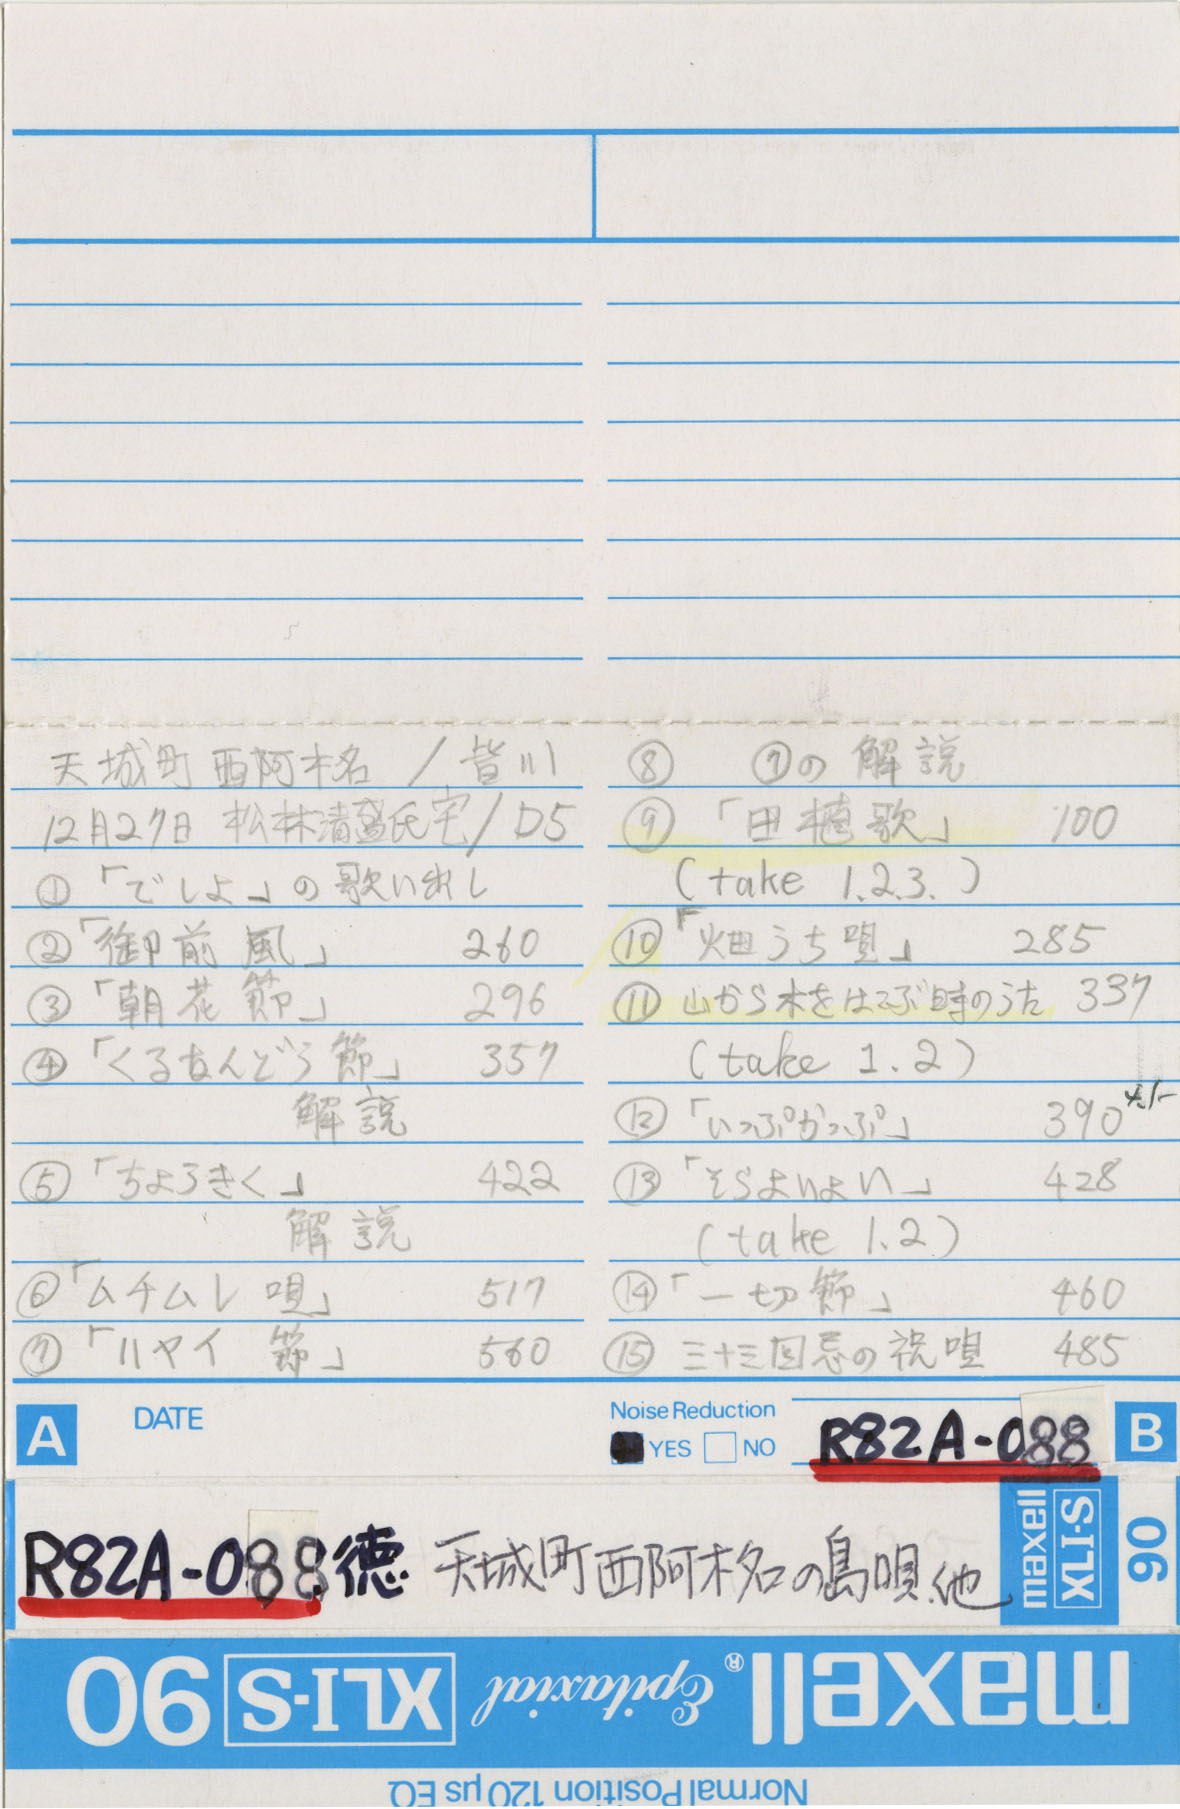 天城町 西阿木名 / 皆川
12月27日 松林清盛氏宅 / D5
① 「でしよ」の歌い出し
② 「御前風」 260
③ 「朝花節」 296
④ 「くるだんどう節」 357
解説
⑤ 「ちょうきく」 422
解説
⑥ 「ムチムレ唄」 517
⑦ 「ハヤイ節」 560
⑧ ⑦の解説
⑨ 「田植歌」 100
(take 1.2.3.)
⑩ 「畑うち唄」 285
⑪ 山から木をはこぶ時のうた 337
(take 1.2)
⑫ 「いっぷかっぷ」 390
⑬ 「そらよいよい」 428
(take 1.2)
⑭ 「一切節」 460
⑮ 三十三回忌の祝唄 485
A DATE
Noise Reduction
YES NO
R82A-088 B
R82A-088 徳 天城町西阿木名の島唄.他
maxell XLI-S 90
maxell® Epitaxial XLI-S 90
Normal Position 120 µs EQ